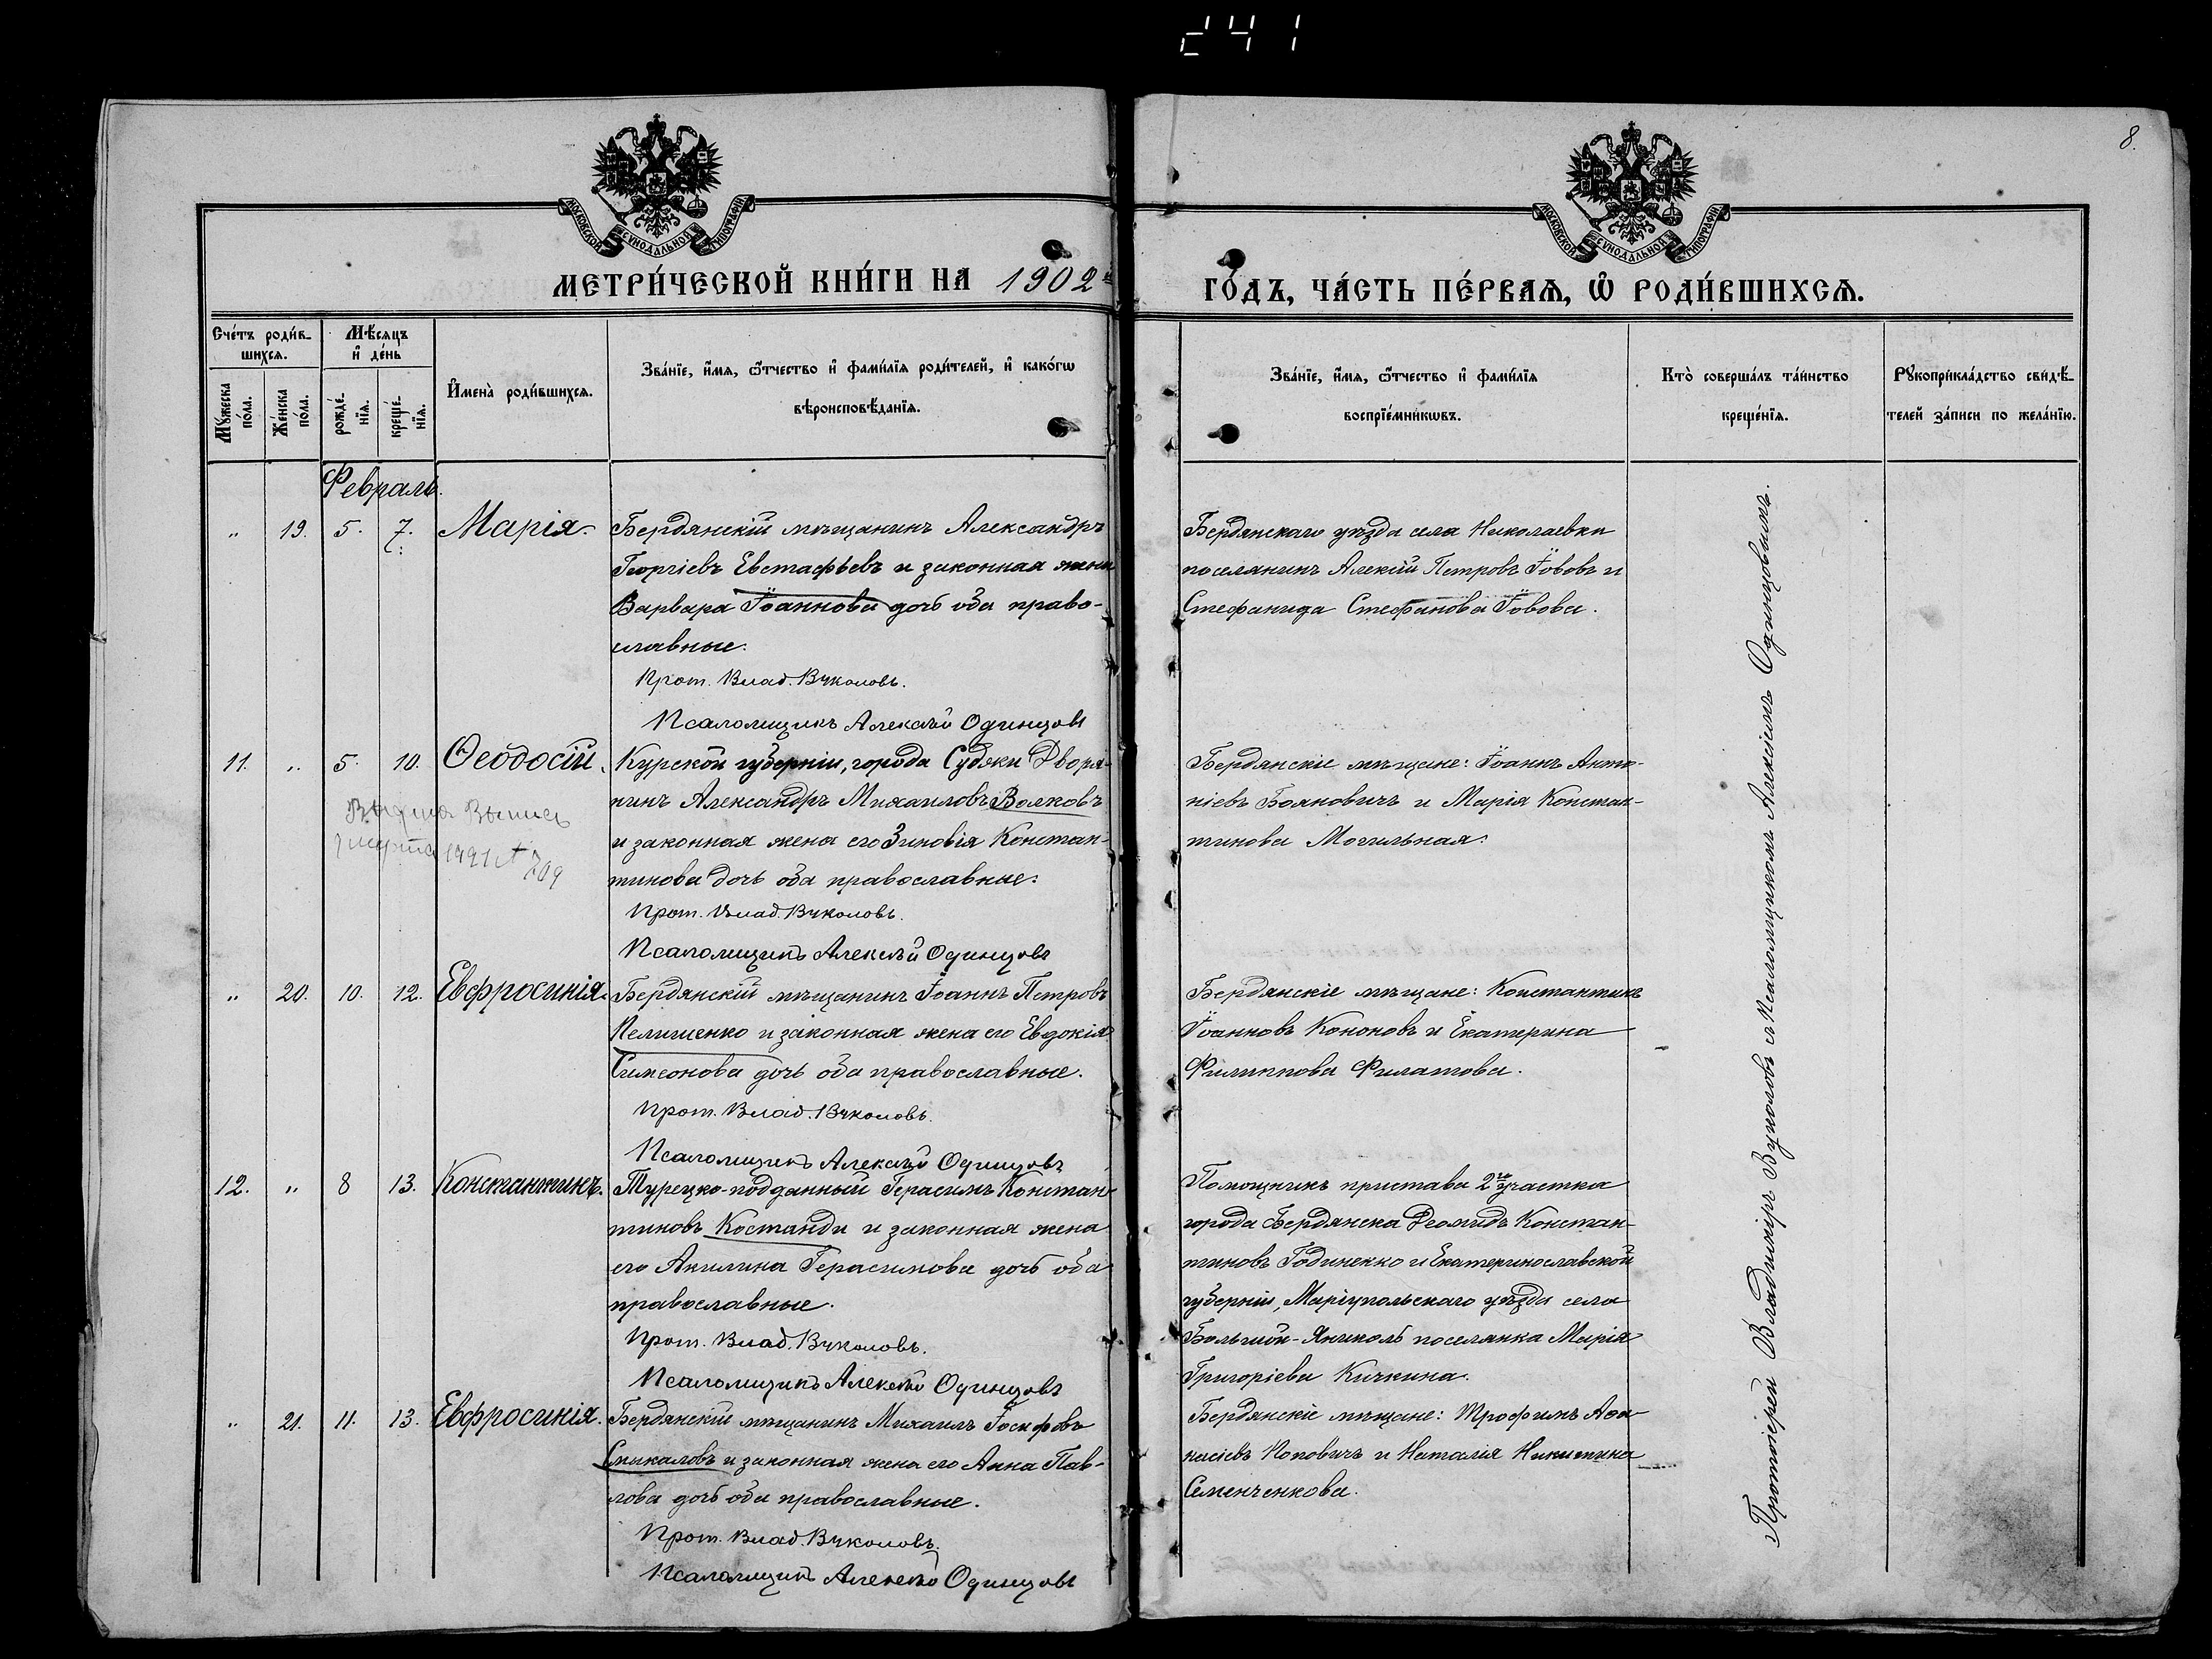 241
8.
МОСКОВСКОЙ СѴНОДАЛЬНОЙ ТИПОГРАФІИ
МОСКОВСКОЙ СѴНОДАЛЬНОЙ ТИПОГРАФІИ
МЕТРИ́ЧЕСКОЙ КНИ́ГИ НА 1902й
ГО́ДЪ, ЧА́СТЬ ПЕ́РВАѦ, Ѽ РОДИ́ВШИХСѦ.
Сче́тъ роди́в-
шихсѧ.
Мѣ́сяцъ
и҆ де́нь
Мꙋ́жеска
по́ла.
Же́нска
по́ла.
рожде́-
нїѧ.
креще́-
нїѧ.
И҆мена̀ роди́вшихсѧ.
Зва́нїе, и҆́мѧ, ѻ҆́тчество и҆ фами́лїѧ роди́телей, и҆ како́гѡ
вѣроисповѣ́данїѧ.
Зва́нїе, и҆́мѧ, ѻ҆́тчество и҆ фами́лїѧ
воспрїе́мникѡвъ.
Кто̀ соверша́лъ та́инство
креще́нїѧ.
Рꙋкоприкла́дство свидѣ́-
телей за́писи по жела́нїю.
Февраль.
" 19. 5. 7. Марія. Бердянскій мѣщанинъ Александръ
Георгіевъ Евстафьевъ и законная жена
Варвара Іоаннова дочь оба право-
славные.
Прот. Влад. Вуколовъ.
Псаломщикъ Алексѣй Одинцовъ
Бердянскаго уѣзда села Николаевки
поселянинъ Алексій Петровъ Іововъ и
Стефанида Стефанова Іовова.
11. " 5. 10. Ѳеодосій. Курской губерніи, города Суджи Дворя-
нинъ Александръ Михаиловъ Волковъ
и законная жена его Зиновія Констан-
тинова дочь оба православные.
Прот. Влад. Вуколовъ.
Псаломщикъ Алексѣй Одинцовъ
Выдана Выпись
709
Бердянскіе мѣщане: Іоаннъ Анто-
ніевъ Бояновичъ и Марія Констан-
тинова Могильная.
" 20. 10. 12. Евфросинія. Бердянскій мѣщанинъ Іоаннъ Петровъ
Пелишенко и законная жена его Евдокія
Симеонова дочь оба православные.
Прот. Влад. Вуколовъ.
Псаломщикъ Алексѣй Одинцовъ
Бердянскіе мѣщане: Константинъ
Іоанновъ Кононовъ и Екатерина
Филиппова Филатова.
12. " 8 13. Константинъ. Турецко-подданный Герасимъ Констан-
тиновъ Костанди и законная жена
его Ангилина Герасимова дочь оба
православные.
Прот. Влад. Вуколовъ.
Псаломщикъ Алексѣй Одинцовъ
Помощникъ пристава 2го участка
города Бердянска Деомидъ Констан-
тиновъ Годиненко и Екатеринославской
губерніи, Маріупольскаго уѣзда села
Большой-Яниколь поселянка Марія
Григоріева Кичкина.
" 21. 11. 13. Евфросинія. Бердянскій мѣщанинъ Михаилъ Іосифовъ
Смикаловъ и законная жена его Анна Пав-
лова дочь оба православные.
Прот. Влад. Вуколовъ.
Псаломщикъ Алексѣй Одинцовъ
Бердянскіе мѣщане: Трофимъ Аѳа-
насіевъ Поповичъ и Наталія Никитина
Семенченкова.
Протоіерей Владиміръ Вуколовъ съ Псаломщикомъ Алексіемъ Одинцовымъ.